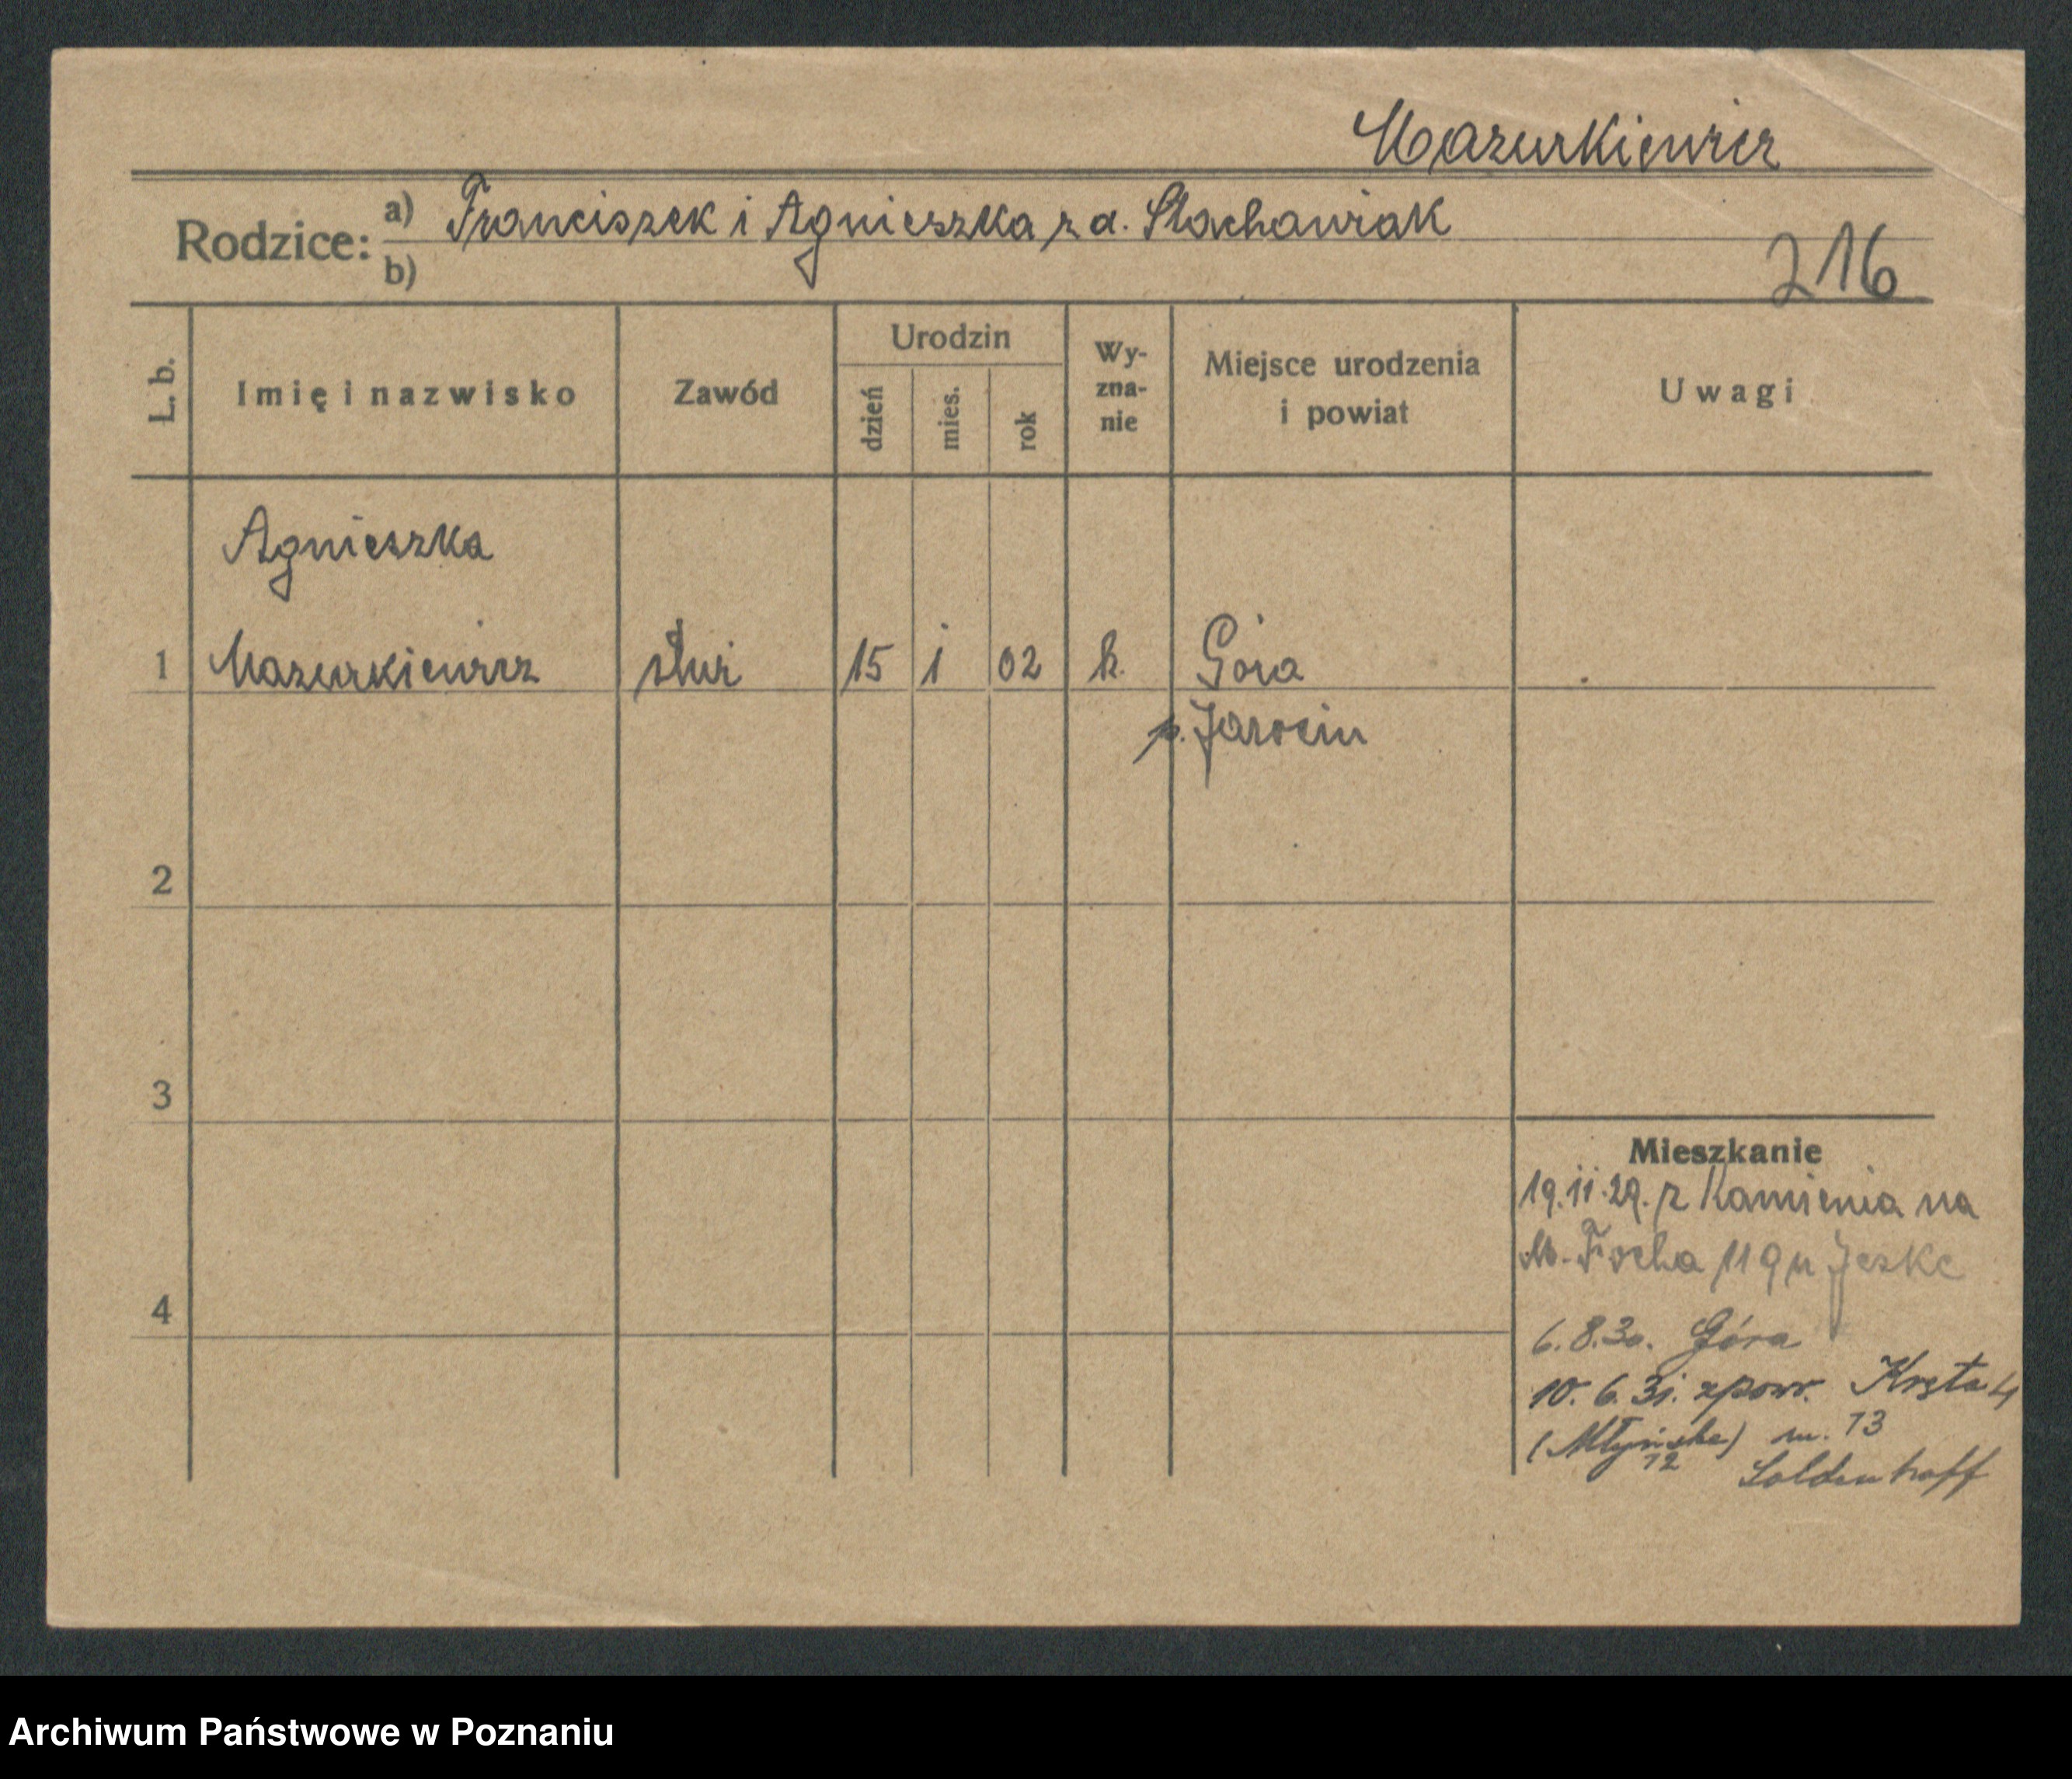 Mazurkiewicz
Rodzice: a) Franciszek i Agnieszka z d. Stachowiak
b)
216
L. b.
Imię i nazwisko
Zawód
Urodzin
dzień
mies.
rok
Wy-
zna-
nie
Miejsce urodzenia
i powiat
Uwagi
Agnieszka
1 Mazurkiewicz służ 15 i 02 k. Góra
p. Jarocin
2
3
Mieszkanie
19.ii.29. z Kamienia na
M. Focha 119 u Jeske
4
6.8.30. Góra
10.6.31. zpowr. Kręta 4
(Młyńska) m. 13
12
Soldenhoff
Archiwum Państwowe w Poznaniu